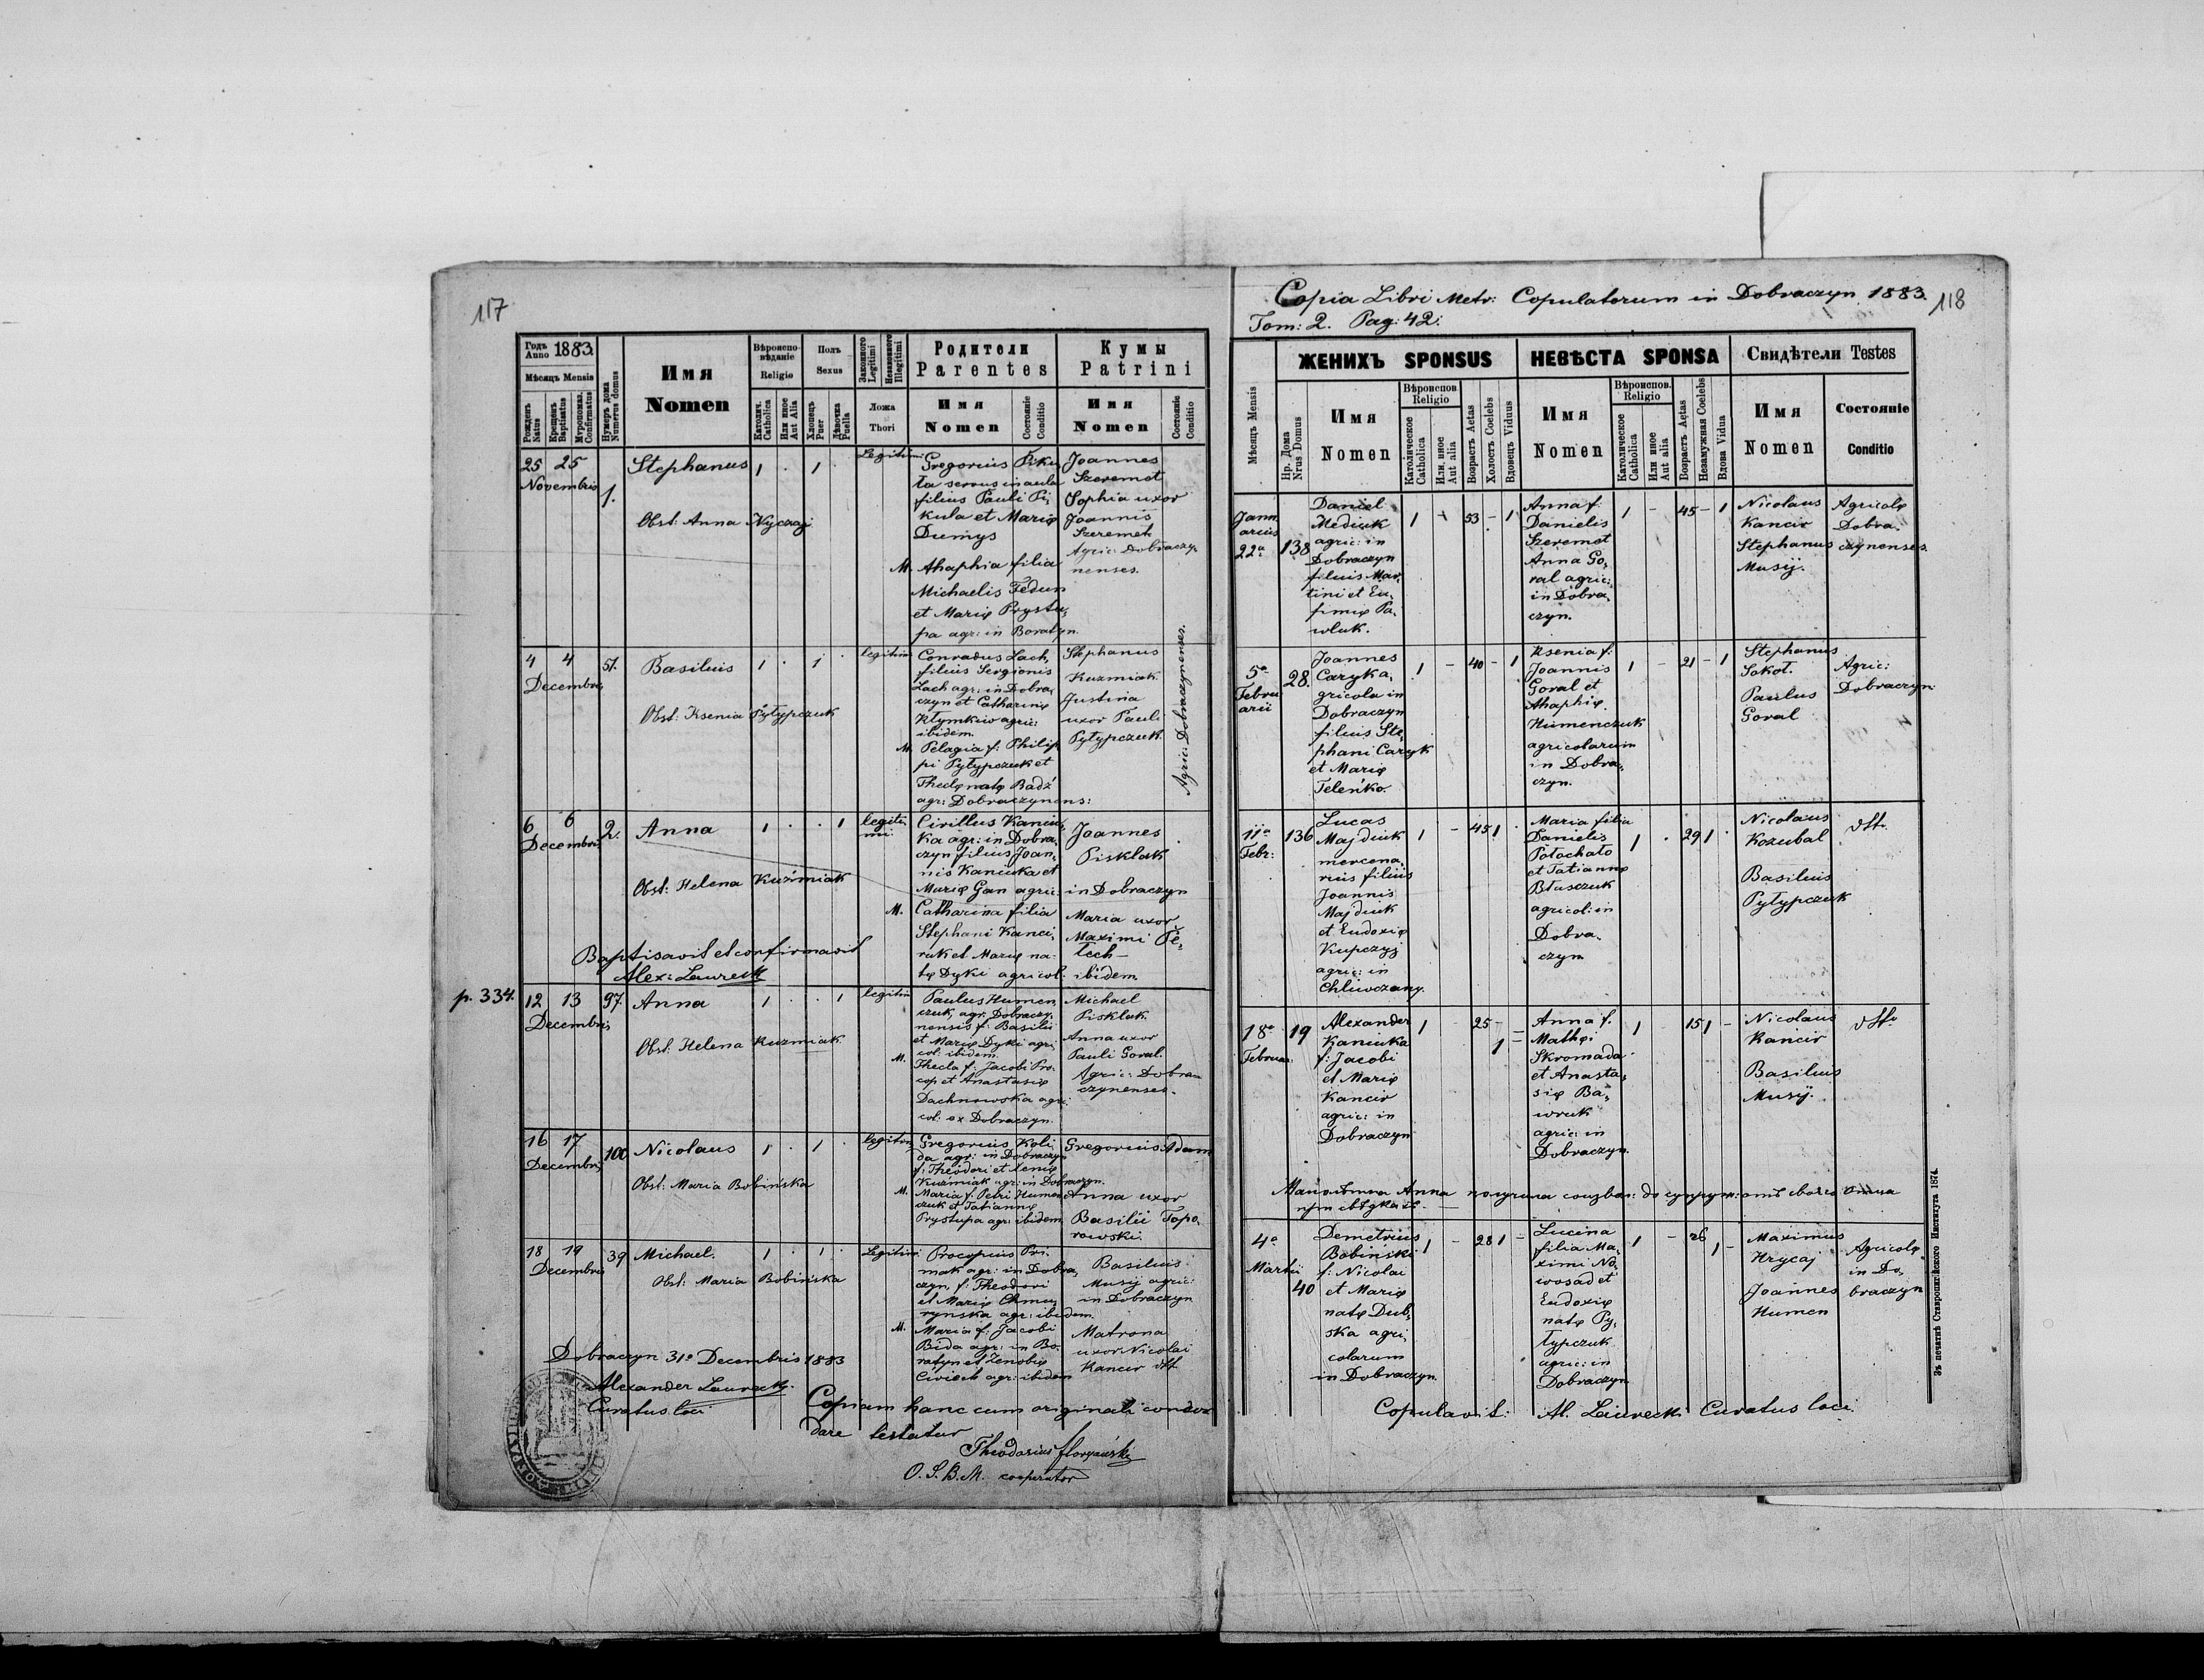 117
Годъ Anno 1883.
Мѣсяцъ Mensis
Рожденъ Natus
Крещенъ Baptisatus
Мѵропомаз. Confirmatus
Нумеръ дома Numerus domus
Имя Nomen
Вѣроисповѣданіе Religio
Католич. Catholica
Или иное Aut Alia
Полъ Sexus
Хлопецъ Puer
Дѣвочка Puella
Законного Legitimi
Незаконного Illegitimi
Ложа Thori
Родители Parentes
Имя Nomen
Состояніе Conditio
Кумы Patrini
Имя Nomen
Состояніе Conditio
25 25
Novembris
1.
Stephanus
1 . 1 .
Legitimi
Obst: Anna Nyczaj
Gregorius Piku
ła servus in aula
filius Pauli Pi,
kula et Marię
Dumys
M. Ahaphia filia
Michaelis Fedun
et Marię Prystu,
pa agr: in Boratyn.
Joannes
Szeremet
Sophia uxor
Joannis
Szeremet
Agric: Dobraczy
nenses.
4 4
Decembris
51.
Basilius
1 . 1 .
legitimi
Obst: Ksenia Pyłypczuk
Conradus Lach,
filius Sergionis
Lach agr: in Dobra,
czyn et Catharinę
Kłymkiw agric:
ibidem.
M. Pelagia f: Philip
pi Pyłypczuk et
Theclę natę Badź
agr: Dobraczynens:
Stephanus
Kuzmiak
Justina
uxor Pauli
Pyłypczuk.
Agric: Dobraczynenses.
6 6
Decembris
2.
Anna
1 . . 1
legiti
mi.
Obst: Helena Kuźmiak
Cirillus Kaniu,
ka agr: in Dobra,
czyn filius Joan,
nis Kaniuka et
Marię Gan agric:
M. Catharina filia
Stephani Kanci,
ruk et Marię na-
tę Dyki agricol.
Joannes
Pisklak
in Dobraczyn
Maria uxor
Maximi Pe,
lech
ibidem.
Baptisavit et confirmavit
Alex: Laurecki
p. 334.
12 13
Decembris
97.
Anna
1 . . 1
legitimi
Obst. Helena Kuzmiak
Paulus Humen,
czuk, agr: Dobraczy,
nensis f: Basilii
et Marię Dyki agri,
col: ibidem.
M. Thecla f: Jacobi Pro,
cop et Anastasię
Dachnowska agri
col: ex Dobraczyn.
Michael
Pisklak.
Anna uxor
Pauli Goral.
Agric: Dobra
czynenses.
16 17
Decembris
100
Nicolaus
1 . 1 .
legitimi
Obst: Maria Bobińska
Gregorius Koli
da agr: in Dobraczyn
f: Theodori et Xenię
Kuźmiak agr: in Dobraczyn.
M. Maria f: Petri Humen
czuk et Tatiannę
Prystupa agr: ibidem
Gregorius Adam
Anna uxor
Basilii Topo,
rowski.
18 19
Decembris
39
Michael.
1 . 1 .
Legitimi
Obst: Maria Bobińska
Procopius Pri,
mak agr: in Dobra,
czyn, f: Theodori
et Marię Chme,
rynska agr: ibidem.
M. Maria f: Jacobi
Bida agr: in Bo,
ratyn et Zenobię
agr: ibidem
Basilius
Musij agric:
in Dobraczyn
Matrona
uxor Nicolai
Kancir dtt.
Dobraczyn 31º Decembris 1883
Alexander Laurecki.
Curatus loci
Copiam hanc cum originali concor
dare testatur
Theodosius
O. S. B. M. cooperator
Copia Libri Metr: Copulatorum in Dobraczyn 1883. 118
Tom: 2. Pag: 42.
Мѣсяцъ Mensis
ЖЕНИХЪ SPONSUS
Нр. Дома Nrus Domus
Имя Nomen
Вѣроиспов. Religio
Католическое Catholica
Или иное Aut alia
Возрастъ Aetas
Холостъ Coelebs
Вдовецъ Viduus
НЕВѢСТА SPONSA
Имя Nomen
Вѣроиспов. Religio
Католическое Catholica
Или иное Aut alia
Возрастъ Aetas
Незамужная Coelebs
Вдова Vidua
Свидѣтели Testes
Имя Nomen
Состояніе Conditio
Janu
arius
22ª
138
Daniel
Mediuk
agric: in
Dobraczyn
filius Mar,
tini et Eu,
fimię Pa,
wluk.
1 - 53 - 1
Anna f.
Danielis
Szeremet
Anna Go,
ral agric:
in Dobra,
czyn.
1 - 45 - 1
Nicolaus
Kancir
Stephanus
Musij.
Agricolę
Dobra,
czynenses.
5ª
Febru
arii
28.
Joannes
Caryk a,
gricola in
Dobraczyn
filius Ste,
phani Caryk
et Marię
Teleńko.
1 - 40 - 1
Ksenia f:
Joannis
Goral et
Ahaphię
Humenczuk
agricolarum
in Dobra,
czyn.
1 - 21 - 1
Stephanus
Sokoł.
Paulus
Goral
Agric:
Dobraczyn
11ª
Febr:
136
Lucas
Majdiuk
mercena,
rius filius
Joannis
Majdiuk
et Eudoxię
Kupczyj
agric: in
Chliwczany.
1 - 45 1 .
Maria filia
Danielis
Połochało
et Tatiannę
Błasczuk
agricol: in
Dobra,
czyn
1 . 29 1 .
Nicolaus
Kozubal
Basilius
Pyłypczuk
dtt.
18ª
Februar:
19
Alexander
Kaniuka
f: Jacobi
et Marię
Kancir
agric: in
Dobraczyn
1 25 1
Anna f.
Mathę.
Skromada
et Anasta,
się Ba,
wruk
agric: in
Dobraczyn.
1 15 1 -
Nicolaus
Kancir
Basilius
Musij.
dtt.
Малолѣтна Anna получила соизвол: до супруж: отъ своего отца
при свѣдках.
4ª
Martii
40
Demetrius
Bobiński
f: Nicolai
et Marię
natę Dub,
ska agri,
colarum
in Dobraczyn.
1 - 28 1 -
Lucina
filia Ma,
ximi No,
wosad et
Eudoxię
natę Py,
łypczuk
agric: in
Dobraczyn
1 - 26 1 -
Maximus
Hrycaj
Joannes
Humen
Agricolę
in Do,
braczyn
Copulavit: Al. Laurecki Curatus loci.
Зъ печатнѣ Ставропигійского Института 1874.